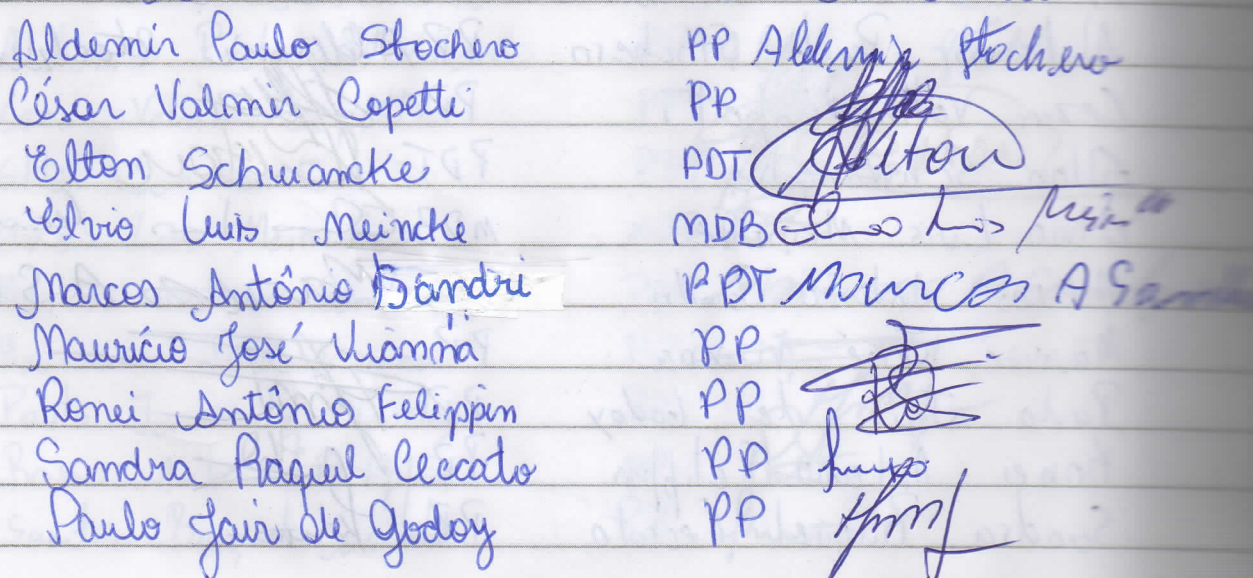 Aldemir Paulo Stochero PP Aldemir Stochero
César Valmir Copetti PP
Elton Schwancke PDT Elton
Elvio Luis Meincke MDB Elvio Luis
Marcos Antônio Sandri PDT Marcos A
Maurício José Vianna PP
Ronei Antônio Felippin PP
Sandra Raquel Ceccato PP
Paulo Jair de Godoy PP